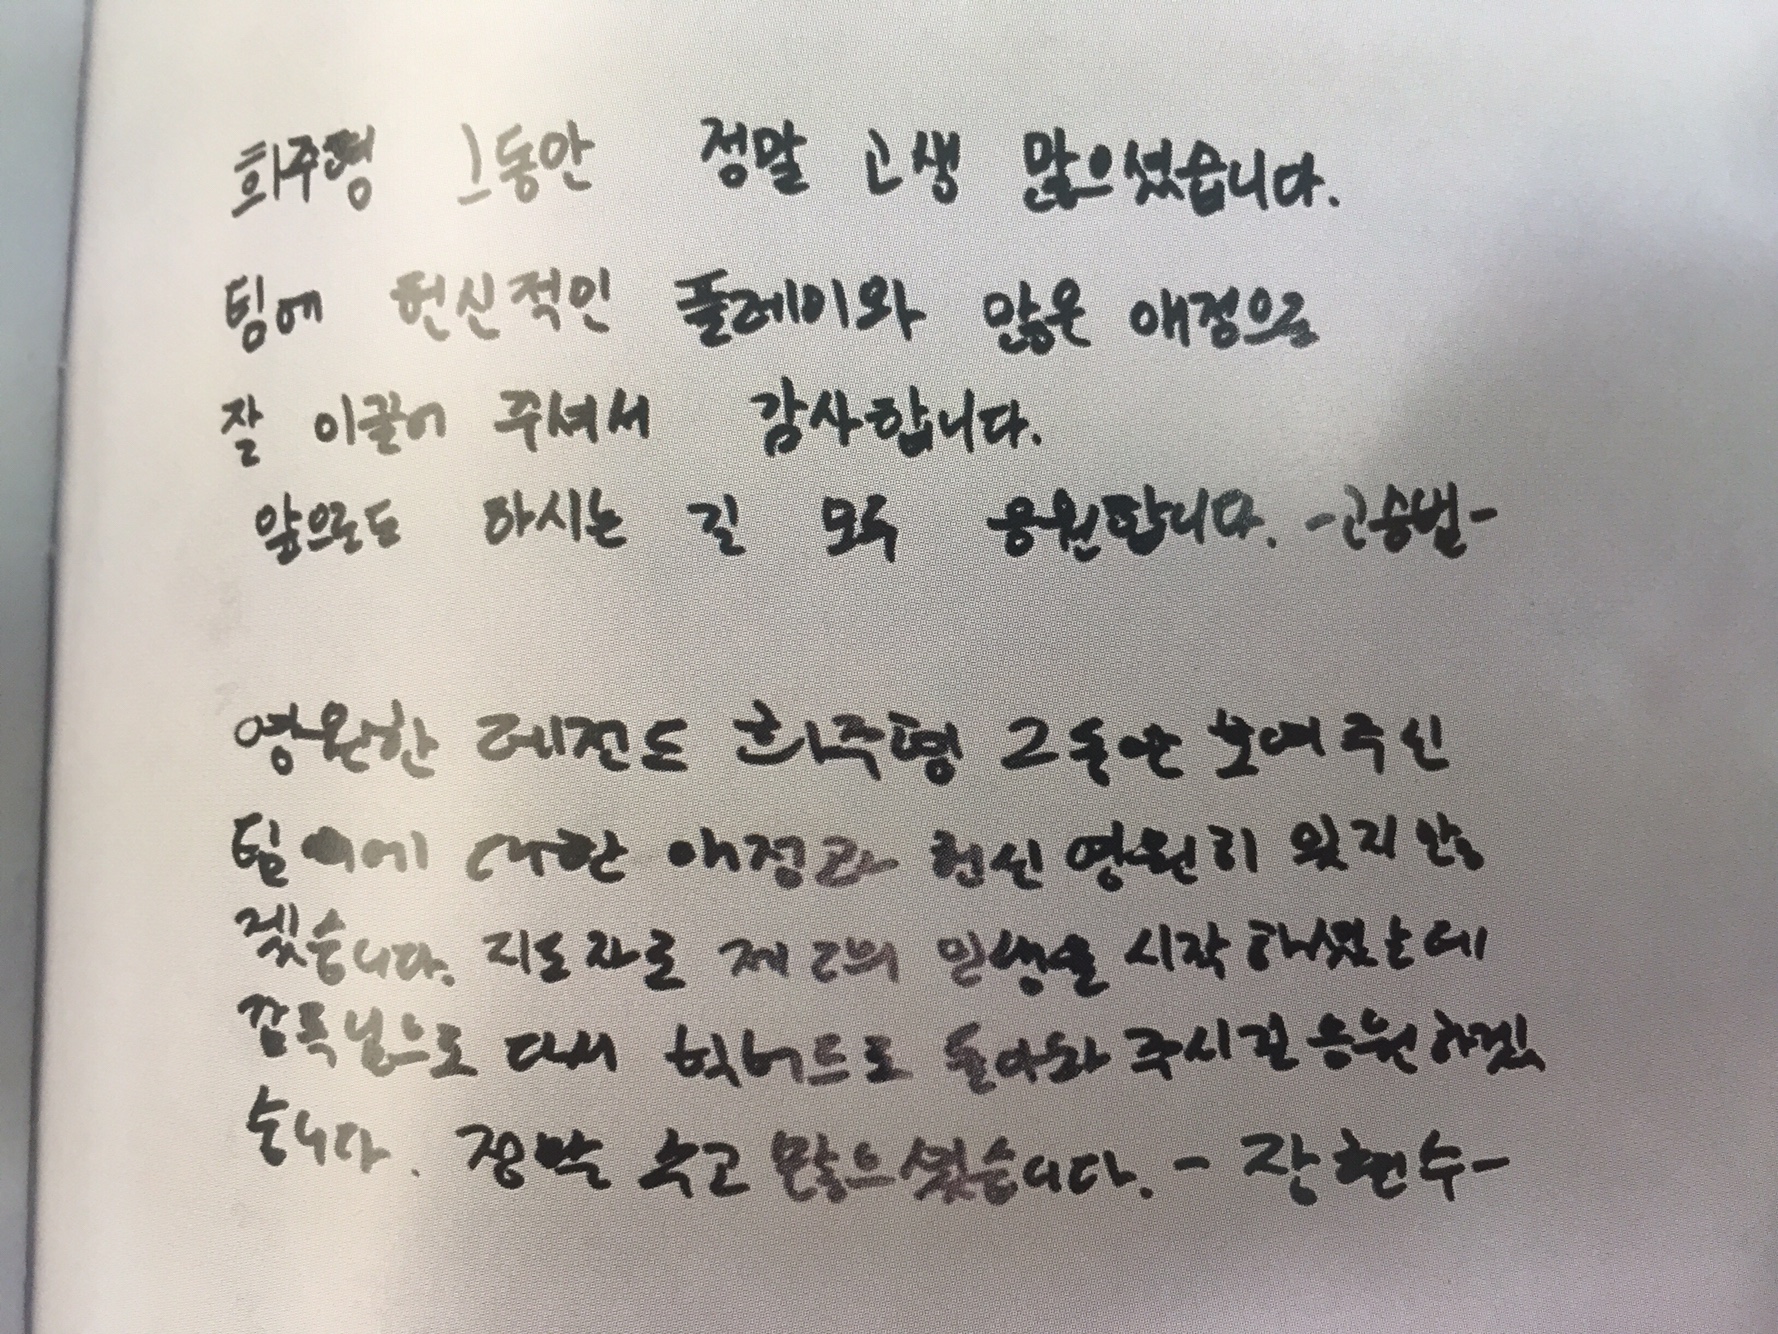 희주형 그동안 정말 고생 많으셨습니다.
팀에 헌신적인 플레이와 많은 애정으로
잘 이끌어 주셔서 감사합니다.
앞으로도 하시는 길 모두 응원합니다. -고승범-
영원한 레전드 희주형 그동안 보여주신
팀에 대한 애정과 헌신 영원히 잊지 않
겠습니다. 지도자로 제 2의 인생을 시작하셨는데
감독님으로 다시 빅버드로 돌아와 주시길 응원하겠
습니다. 정말 수고 많으셨습니다. - 장현수-